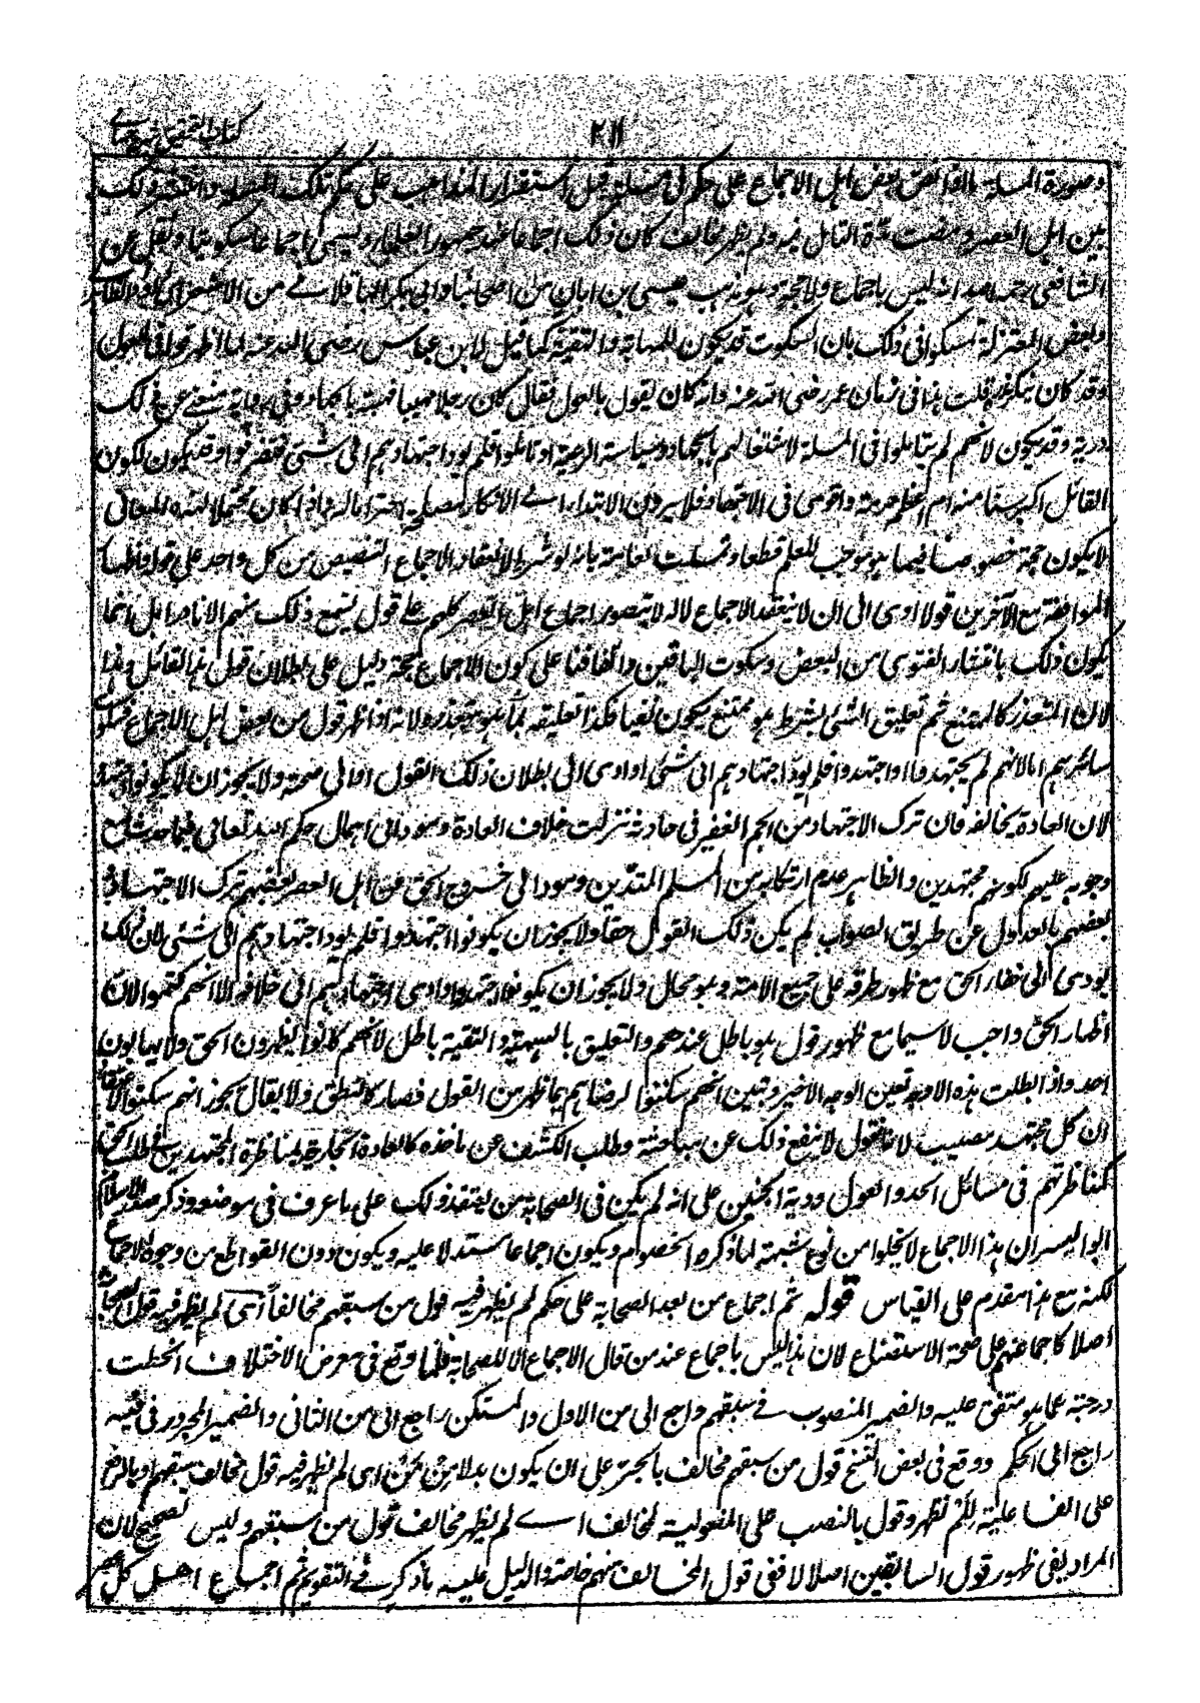 ٢١١
وصورة المسئلة ما اذا نص بعض اهل الاجماع على حكم فى مسئلة قبل استقرار المذاهب على حكم تلك المسئلة وانتشر ذلك
بين اهل العصر ومضت مدة التامل فيه ولم يظهر مخالف كان ذلك اجماعا عند جمهور العلماء ويسمى اجماعا سكوتيا ونقل عن
الشافعى رحمه الله انه ليس باجماع ولا حجة وهو مذهب عيسى بن ابان من اصحابنا وابى بكر الباقلانى من الاشعرية
وبعض المعتزلة تمسكوا فى ذلك بان السكوت قد يكون للمهابة والتقية كما قيل لابن عباس رضى الله عنه لما اظهر قوله فى العول
وقد كان ينكره هلا قلت هذا فى زمان عمر رضى الله عنه وانه كان يقول بالعول فقال كان رجلا مهيبا فهبته وفى رواية منعنى عن ذلك
درته وقد يكون لانهم لم يتاملوا فى المسئلة لاشتغالهم بالجهاد وسياسة الرعية او تاملوا فلم يؤد اجتهادهم الى شئ فتوقفوا وقد يكون لكون
القائل اكبر سنا منه ام اعظم حرمة واقوى فى الاجتهاد فلا يرون الابتداء بالانكار مصلحة احتراما له واذا كان محتملا لهذه المعانى
لا يكون حجة خصوصا فيما هو موجب للعلم قطعا وتمسكت العامة بانه لو شرط لانعقاد الاجماع التنصيص من كل واحد على قوله واظهار
الموافقة مع الآخرين قولا ادى الى ان لا ينعقد الاجماع لانه لا يتصور اجماع اهل العصر كلهم على قول يسمع ذلك منهم الا نادرا بل انما
يكون ذلك بانتشار الفتوى من البعض وسكوت الباقين واتفاقنا على كون الاجماع حجة دليل على بطلان قول هذا القائل وهذا
لان المتعذر كالممتنع ثم تعليق الشئ بشرط هو ممتنع يكون نفيا فكذا تعليقه بما هو متعذر ولانه اذا ظهر قول من بعض اهل الاجماع فسكوت
سائرهم اما لانهم لم يجتهدوا او اجتهدوا فلم يؤد اجتهادهم الى شئ او ادى الى بطلان ذلك القول او الى صحته ولا يجوز ان لا يكونوا اجتهدوا
لان العادة يخالفه فان ترك الاجتهاد من الجم الغفير فى حادثة نزلت خلاف العادة ومؤد الى اهمال حكم الله تعالى فيما حدث مع
وجوبه عليهم لكونهم مجتهدين والظاهر عدم ارتكابه من المسلم المتدين ومؤد الى خروج الحق عن اهل العصر بعضهم بترك الاجتهاد و
بعضهم بالعدول عن طريق الصواب لم يكن ذلك القول حقا ولا يجوز ان يكونوا اجتهدوا فلم يؤد اجتهادهم الى شئ لان ذلك
يؤدى الى خفاء الحق مع ظهور طرقه على جميع الامة وهو محال ولا يجوز ان يكونوا اجتهدوا وادى اجتهادهم الى خلافه الا انهم كتموا لان
اظهار الحق واجب لاسيما مع ظهور قول هو باطل عندهم والتعليق بالهيبة والتقية باطل لانهم كانوا يظهرون الحق ولا يهابون
احد واذا بطلت هذه الاوجه تعين الوجه الاخير وتبين انهم سكتوا لرضاهم بما ظهر من القول فصار كالنطق ولا يقال يجوز انهم سكتوا لاعتقادهم
ان كل مجتهد مصيب لانا نقول لا يمنع ذلك عن مباحثته وطلب الكشف عن ماخذه كالعادة الجارية بمناظرة المجتهدين فى طلب الحق
كمناظرتهم فى مسائل الجد والعول ودية الجنين على انه لم يكن فى الصحابة من يعتقد ذلك على ما عرف فى موضعه وذكر صدر الاسلام
ابو اليسر ان هذا الاجماع لا يخلوا من نوع شبهة لما ذكره الخصوم ويكون اجماعا مستدلا عليه ويكون دون القواطع من وجوه الاجماع
لكنه مع هذا مقدم على القياس قوله ثم اجماع من بعد الصحابة على حكم لم يظهر فيه قول من سبقهم مخالفا اى لم يظهر فيه قول الصحابة
اصلا كاجماعهم على صحة الاستصناع لان هذا ليس باجماع عند من قال الاجماع الا للصحابة فلما وقع فى معرض الاختلاف انحطت
درجته عما هو متفق عليه والضمير المنصوب فى سبقهم راجع الى من الاول والمستكن راجع الى من الثانى والضمير المجرور فى فيه
راجع الى الحكم ووقع فى بعض النسخ قول من سبقهم مخالف بالجر على ان يكون بدلا من من اى لم يظهر فيه قول مخالف سبقهم او بالرفع
على الفاعلية لم يظهر وقول بالنصب على المفعولية لمخالف اى لم يظهر مخالف قول من سبقهم وليس بصحيح لان
المراد نفى ظهور قول السابقين اصلا لا نفى قول المخالف منهم خاصة والدليل عليه ما ذكر فى التقويم ثم اجماع اهل كل عصر